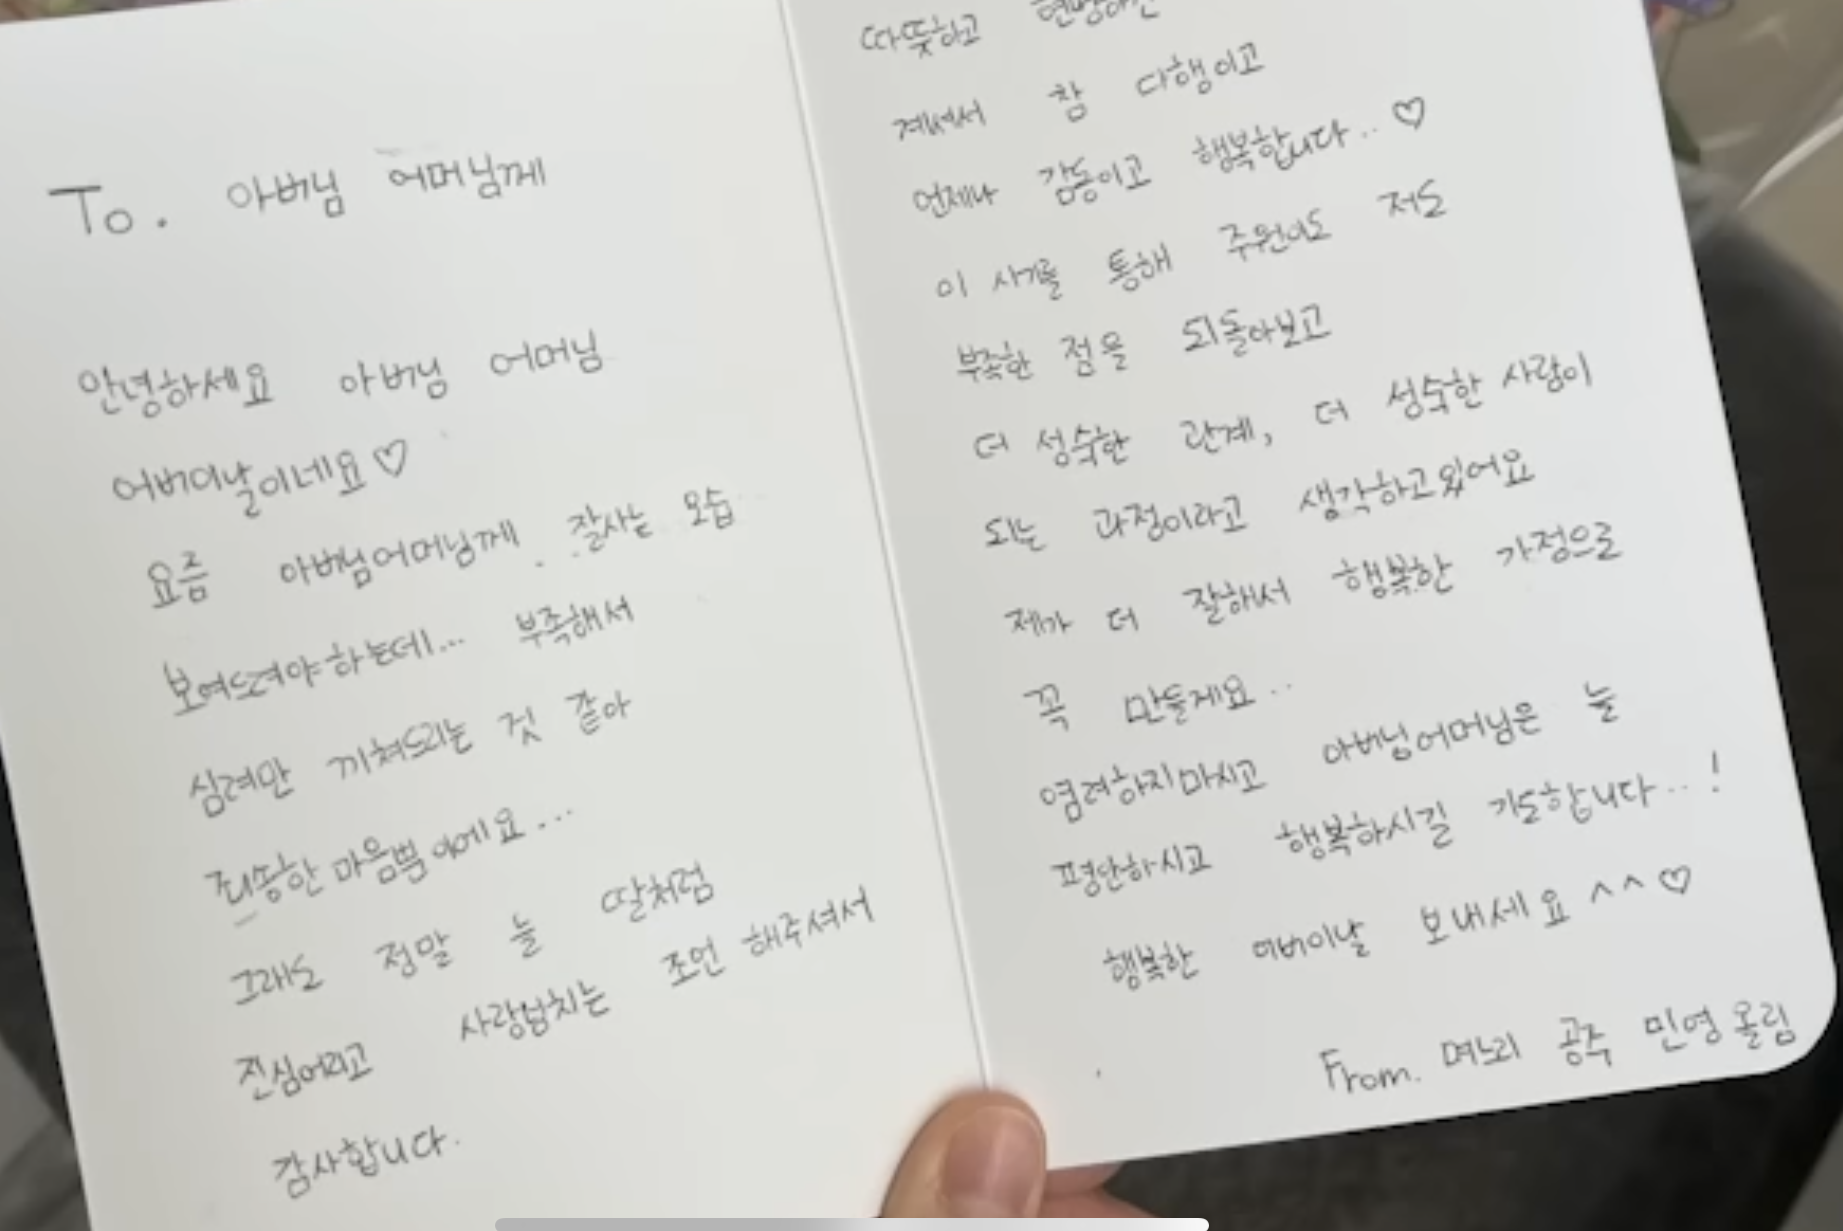 To. 아버님 어머님께
안녕하세요 아버님 어머님
어버이날이네요♡
요즘 아버님어머님께 잘사는 모습
보여드려야하는데... 부족해서
심려만 끼쳐드리는 것 같아
죄송한 마음뿐이에요...
그래도 정말 늘 딸처럼
진심어리고 사랑넘치는 조언 해주셔서
감사합니다.
따뜻하고
계셔서 참 다행이고
언제나 감동이고 행복합니다..♡
이 시기를 통해 주원이도 저도
부족한 점을 되돌아보고
더 성숙한 관계, 더 성숙한 사람이
되는 과정이라고 생각하고있어요
제가 더 잘해서 행복한 가정으로
꼭 만들게요..
염려하지마시고 아버님어머님은 늘
평안하시고 행복하시길 기도합니다...!
행복한 어버이날 보내세요^^♡
From. 며느리 공주 민영 올림